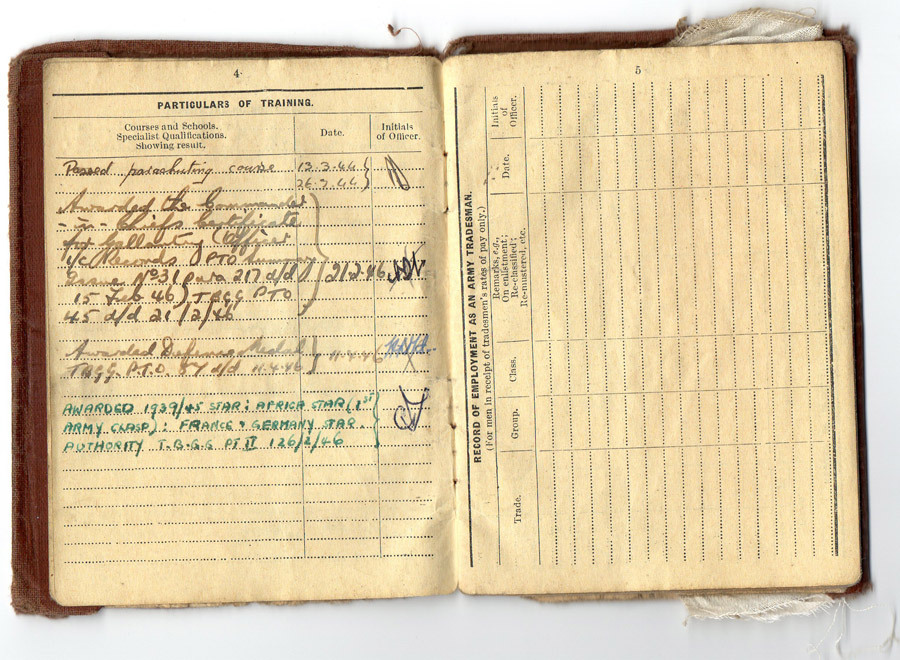 4
PARTICULARS OF TRAINING.
Courses and Schools.
Specialist Qualifications.
Showing result.
Date.
Initials
of Officer.
Passed parachuting course 13.3.44
26.3.44
Awarded the Commander
- in - Chiefs Certificate
for Gallantry (Officer
i/c Records PTO
Issue No 31 para 217 d/d 2/2.46
15 Feb 46) T.B.G.G PTO
45 d/d 21/2/46
Awarded Defence Medal 11.4.46
T.B.G.G. P.T.O. 87 d/d 11.4.46
AWARDED 1939/45 STAR: AFRICA STAR (1ST
ARMY CLASP): FRANCE & GERMANY STAR.
AUTHORITY T.B.G.G PT II 126/2/46
5
RECORD OF EMPLOYMENT AS AN ARMY TRADESMAN.
(For men in receipt of tradesmen's rates of pay only.)
Trade.
Group.
Class.
Remarks, e.g.,
On enlistment;
Re-classified;
Re-mustered, etc.
Date.
Initials
of
Officer.